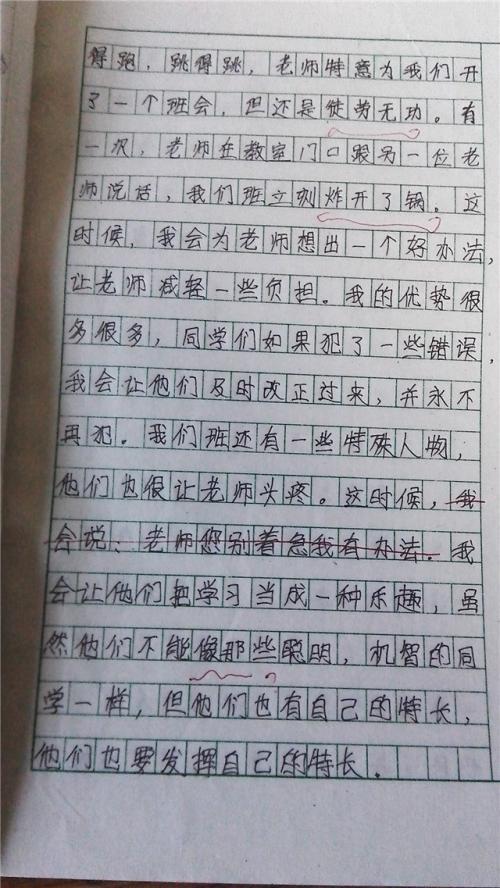 得跑，跳得跳，老师特意为我们开
了一个班会，但还是徒劳无功。有
一次，老师在教室门口跟另一位老
师说话，我们班立刻炸开了锅。这
时候，我会为老师想出一个好办法，
让老师减轻一些负担。我的优势很
多很多，同学们如果犯了一些错误，
我会让他们及时改正过来，并永不
再犯。我们班还有一些特殊人物，
他们也很让老师头疼。这时候，我
会说：老师您别着急我有办法。我
会让他们把学习当成一种乐趣，虽
然他们不能像那些聪明，机智的同
学一样，但他们也有自己的特长，
他们也要发挥自己的特长。